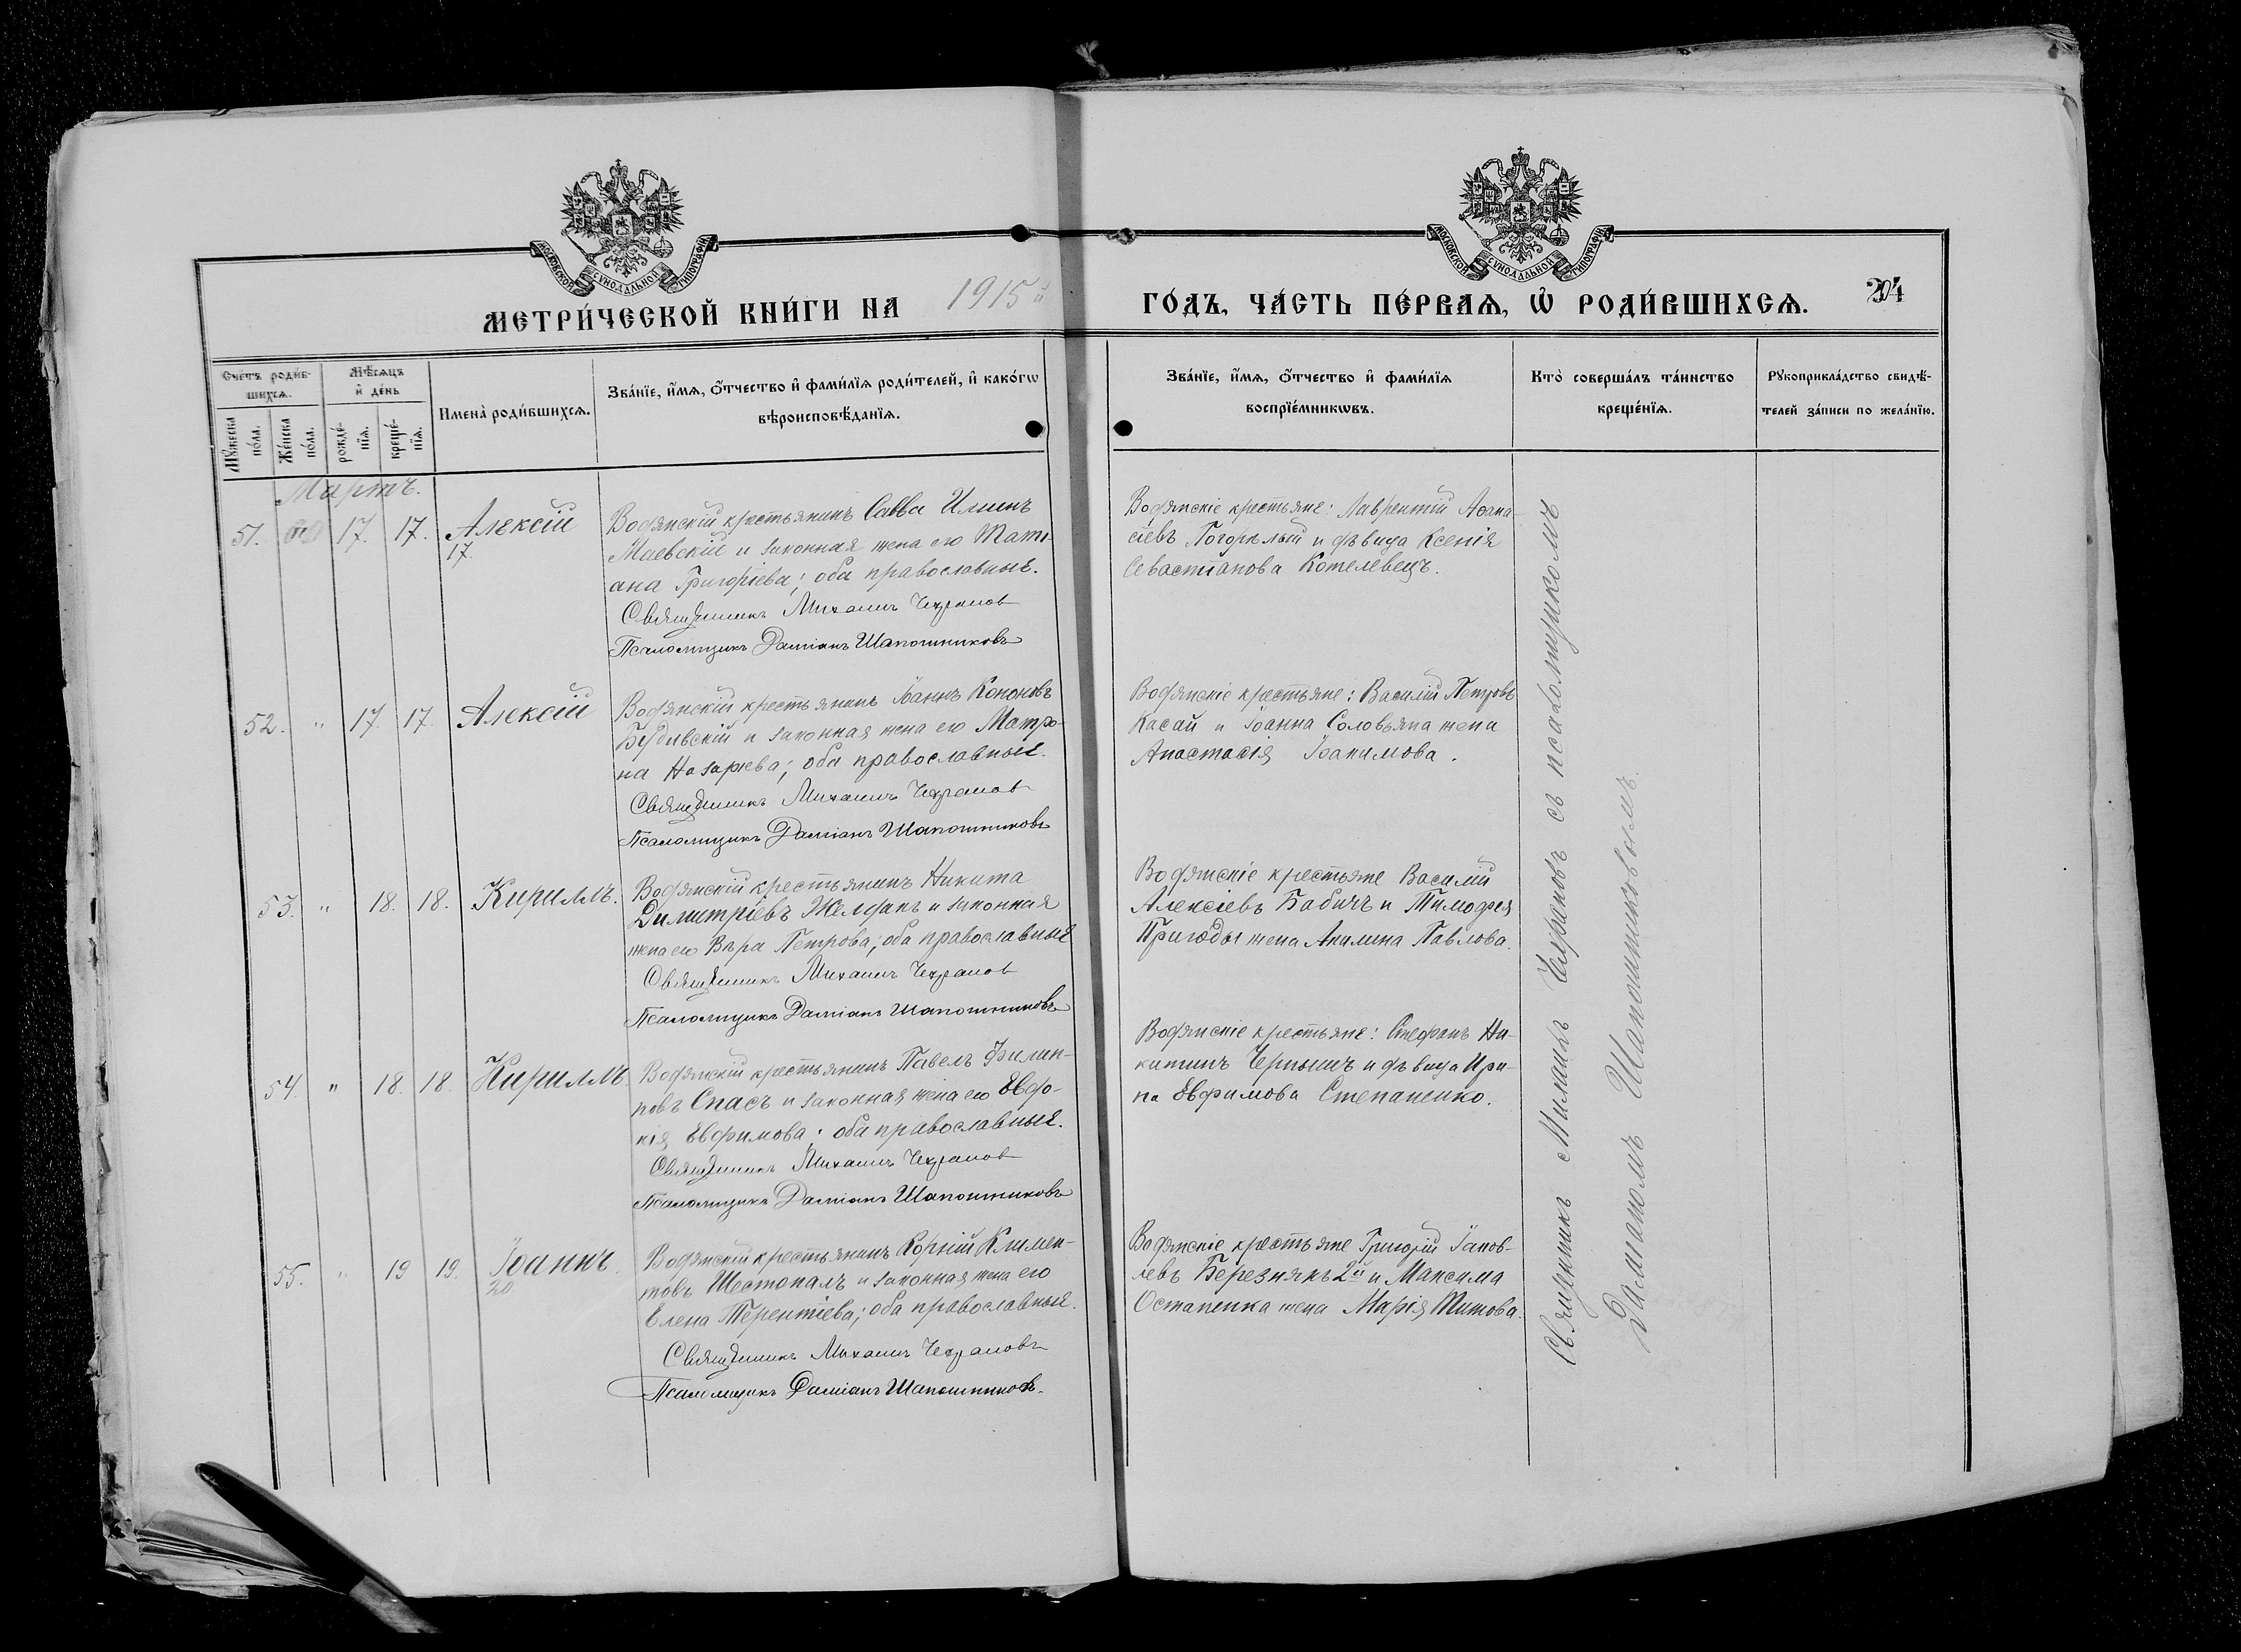 МОСКОВСКОЙ СѴНОДАЛЬНОЙ ТИПОГРАФІИ
МОСКОВСКОЙ СѴНОДАЛЬНОЙ ТИПОГРАФІИ
МЕТРИ́ЧЕСКОЙ КНИ́ГИ НА 1915й ГО́ДЪ, ЧА́СТЬ ПЕ́РВАѦ, Ѡ҆ РОДИ́ВШИХСѦ.
Сче́тъ роди́в-
шихсѧ.
Мѣ́сѧцъ
и҆ де́нь
Мꙋ́жеска
по́ла.
Же́нска
по́ла.
рожде́-
нїѧ.
креще́-
нїѧ.
И҆мена̀ роди́вшихсѧ.
Зва́нїе, и҆́мѧ, ѻ҆́тчество и҆ фами́лїѧ роди́телей, и҆ како́гѡ
вѣроисповѣ́данїѧ.
Зва́нїе, и҆́мѧ, ѻ҆́тчество и҆ фами́лїѧ
воспрїе́мникѡвъ.
Кто̀ соверша́лъ та́инство
креще́нїѧ.
Рꙋкоприкла́дство свидѣ́-
телей за́писи по жела́нїю.
Мартъ.
51. 17. 17. Алексій
17.
Водянскій крестьянинъ Савва Илiинъ
Маевскій и законная жена его Тати-
ана Григоріева; оба православные.
Священникъ Михаилъ Чехрановъ
Псаломщикъ Даміанъ Шапошниковъ
Водянскіе крестьяне: Лаврентій Аѳана-
сіевъ Погорѣлый и дѣвица Ксенія
Севастіанова Котелевецъ.
52. " 17. 17. Алексій
Водянскій крестьянинъ Іоаннъ Кононовъ
и законная жена его Матро-
на Назаріева; оба православные.
Священникъ Михаилъ Чехрановъ
Псаломщикъ Даміанъ Шапошниковъ
Водянскіе крестьяне: Василій Петровъ
Касай и Іоанна Соловьяна жена
Анастасія Іоакимова.
53. " 18. 18. Кириллъ.
Водянскій крестьянинъ Никита
Димитріевъ Желфакъ и законная
жена его Вѣра Петрова; оба православные
Священникъ Михаилъ Чехрановъ
Псаломщикъ Даміанъ Шапошниковъ
Водянскіе крестьяне Василій
Алексіевъ Бабичъ и Тимофея
Пригоды жена Акилина Павлова.
54. " 18. 18. Кириллъ
Водянскій крестьянинъ Павелъ Филип-
повъ Спасъ и законная жена его Евдо-
кія Евфимова; оба православные.
Священникъ Михаилъ Чехрановъ
Псаломщикъ Даміанъ Шапошниковъ
Водянскіе крестьяне: Стефанъ Ни-
китинъ Чернышъ и дѣвица Ири-
на Евфимова Степаненко.
55. " 19 19. Іоаннъ.
20
Водянскій крестьянинъ Корній Климен-
товъ Шестопалъ и законная жена его
Елена Терентіева; оба православные.
Священникъ Михаилъ Чехрановъ
Псаломщикъ Даміанъ Шапошниковъ.
Водянскіе крестьяне Григорій Іаков-
левъ Березнякъ 2й и Максима
Остапенка жена Марія Титова.
Священникъ Михаилъ Чехрановъ съ псаломщикомъ
Даміаномъ Шапошниковымъ.